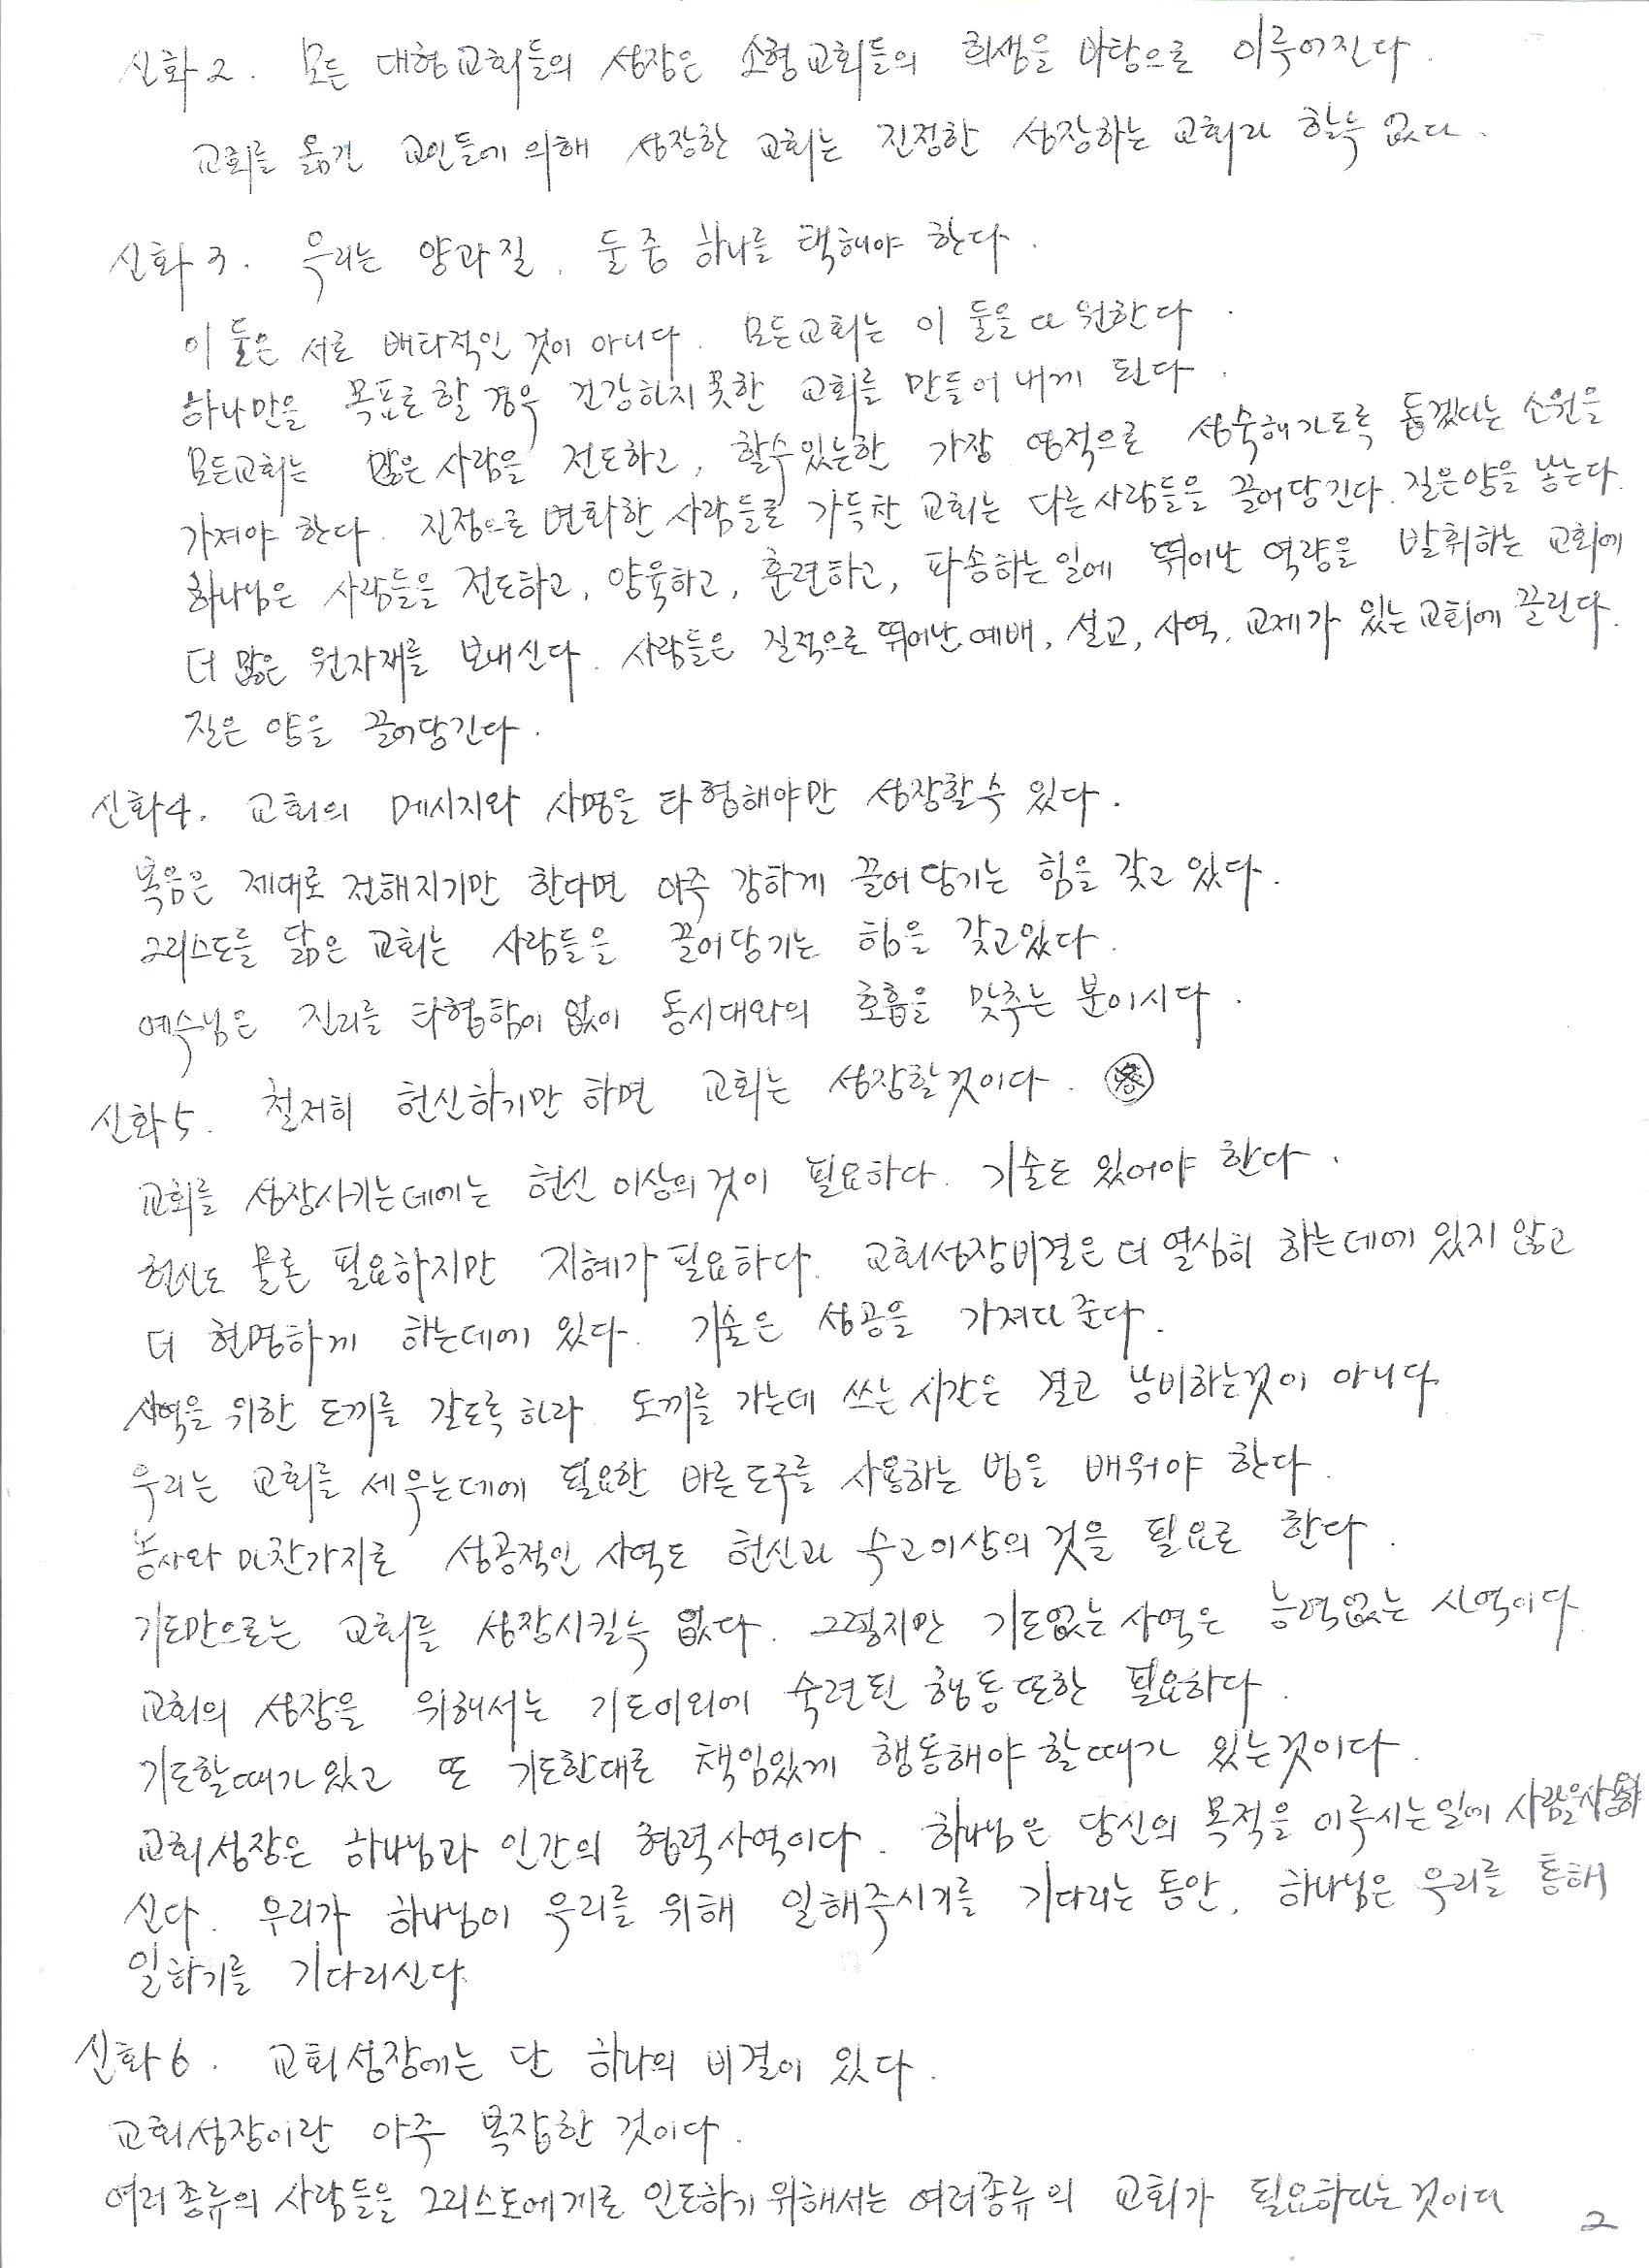 신화2. 모든 대형교회들의 성장은 소형교회들의 희생을 바탕으로 이루어진다.
교회를 옮긴 교인들에 의해 성장한 교회는 진정한 성장하는 교회라 할수 없다.
신화3. 우리는 양과 질, 둘 중 하나를 택해야 한다.
이 둘은 서로 배타적인 것이 아니다. 모든교회는 이 둘을 다 원한다.
하나만을 목표로 할 경우 건강하지 못한 교회를 만들어 내게 된다.
모든교회는 많은 사람을 전도하고, 할수있는한 가장 영적으로 성숙해가도록 돕겠다는 소원을
가져야 한다. 진정으로 변화한 사람들로 가득찬 교회는 다른사람들을 끌어당긴다. 질은양을 낳는다.
하나님은 사람들을 전도하고, 양육하고, 훈련하고, 파송하는일에 뛰어난 역량을 발휘하는 교회에
더 많은 원자재를 보내신다. 사람들은 질적으로 뛰어난 예배, 설교, 사역, 교제가 있는교회에 끌린다.
질은 양을 끌어당긴다.
신화4. 교회의 메시지와 사명을 타협해야만 성장할수 있다.
복음은 제대로 전해지기만 한다면 아주 강하게 끌어당기는 힘을 갖고 있다.
그리스도를 닮은 교회는 사람들을 끌어당기는 힘을 갖고있다.
예수님은 진리를 타협함이 없이 동시대와의 호흡을 맞추는 분이시다.
신화5. 철저히 헌신하기만 하면 교회는 성장할것이다.
교회를 성장시키는데에는 헌신 이상의 것이 필요하다. 기술도 있어야 한다.
헌신도 물론 필요하지만 지혜가 필요하다. 교회성장비결은 더 열심히 하는데에 있지 않고
더 현명하게 하는데에 있다. 기술은 성공을 가져다 준다.
사역을 위한 도끼를 갈도록 하라. 도끼를 가는데 쓰는 시간은 결코 낭비하는것이 아니다.
우리는 교회를 세우는데에 필요한 바른도구를 사용하는 법을 배워야 한다.
농사와 마찬가지로 성공적인 사역도 헌신과 수고이상의 것을 필요로 한다.
기도만으로는 교회를 성장시킬수 없다. 그렇지만 기도없는 사역은 능력없는 사역이다.
교회의 성장을 위해서는 기도이외에 숙련된 행동또한 필요하다.
기도할때가있고 또 기도한대로 책임있게 행동해야 할때가 있는것이다.
교회성장은 하나님과 인간의 협력사역이다. 하나님은 당신의 목적을 이루시는일에 사람을
신다. 우리가 하나님이 우리를 위해 일해주시기를 기다리는 동안, 하나님은 우리를 통해
일하기를 기다리신다.
신화6. 교회성장에는 단 하나의 비결이 있다.
교회성장이란 아주 복잡한 것이다.
여러종류의 사람들을 그리스도에게로 인도하기 위해서는 여러종류의 교회가 필요하다는것이다
2